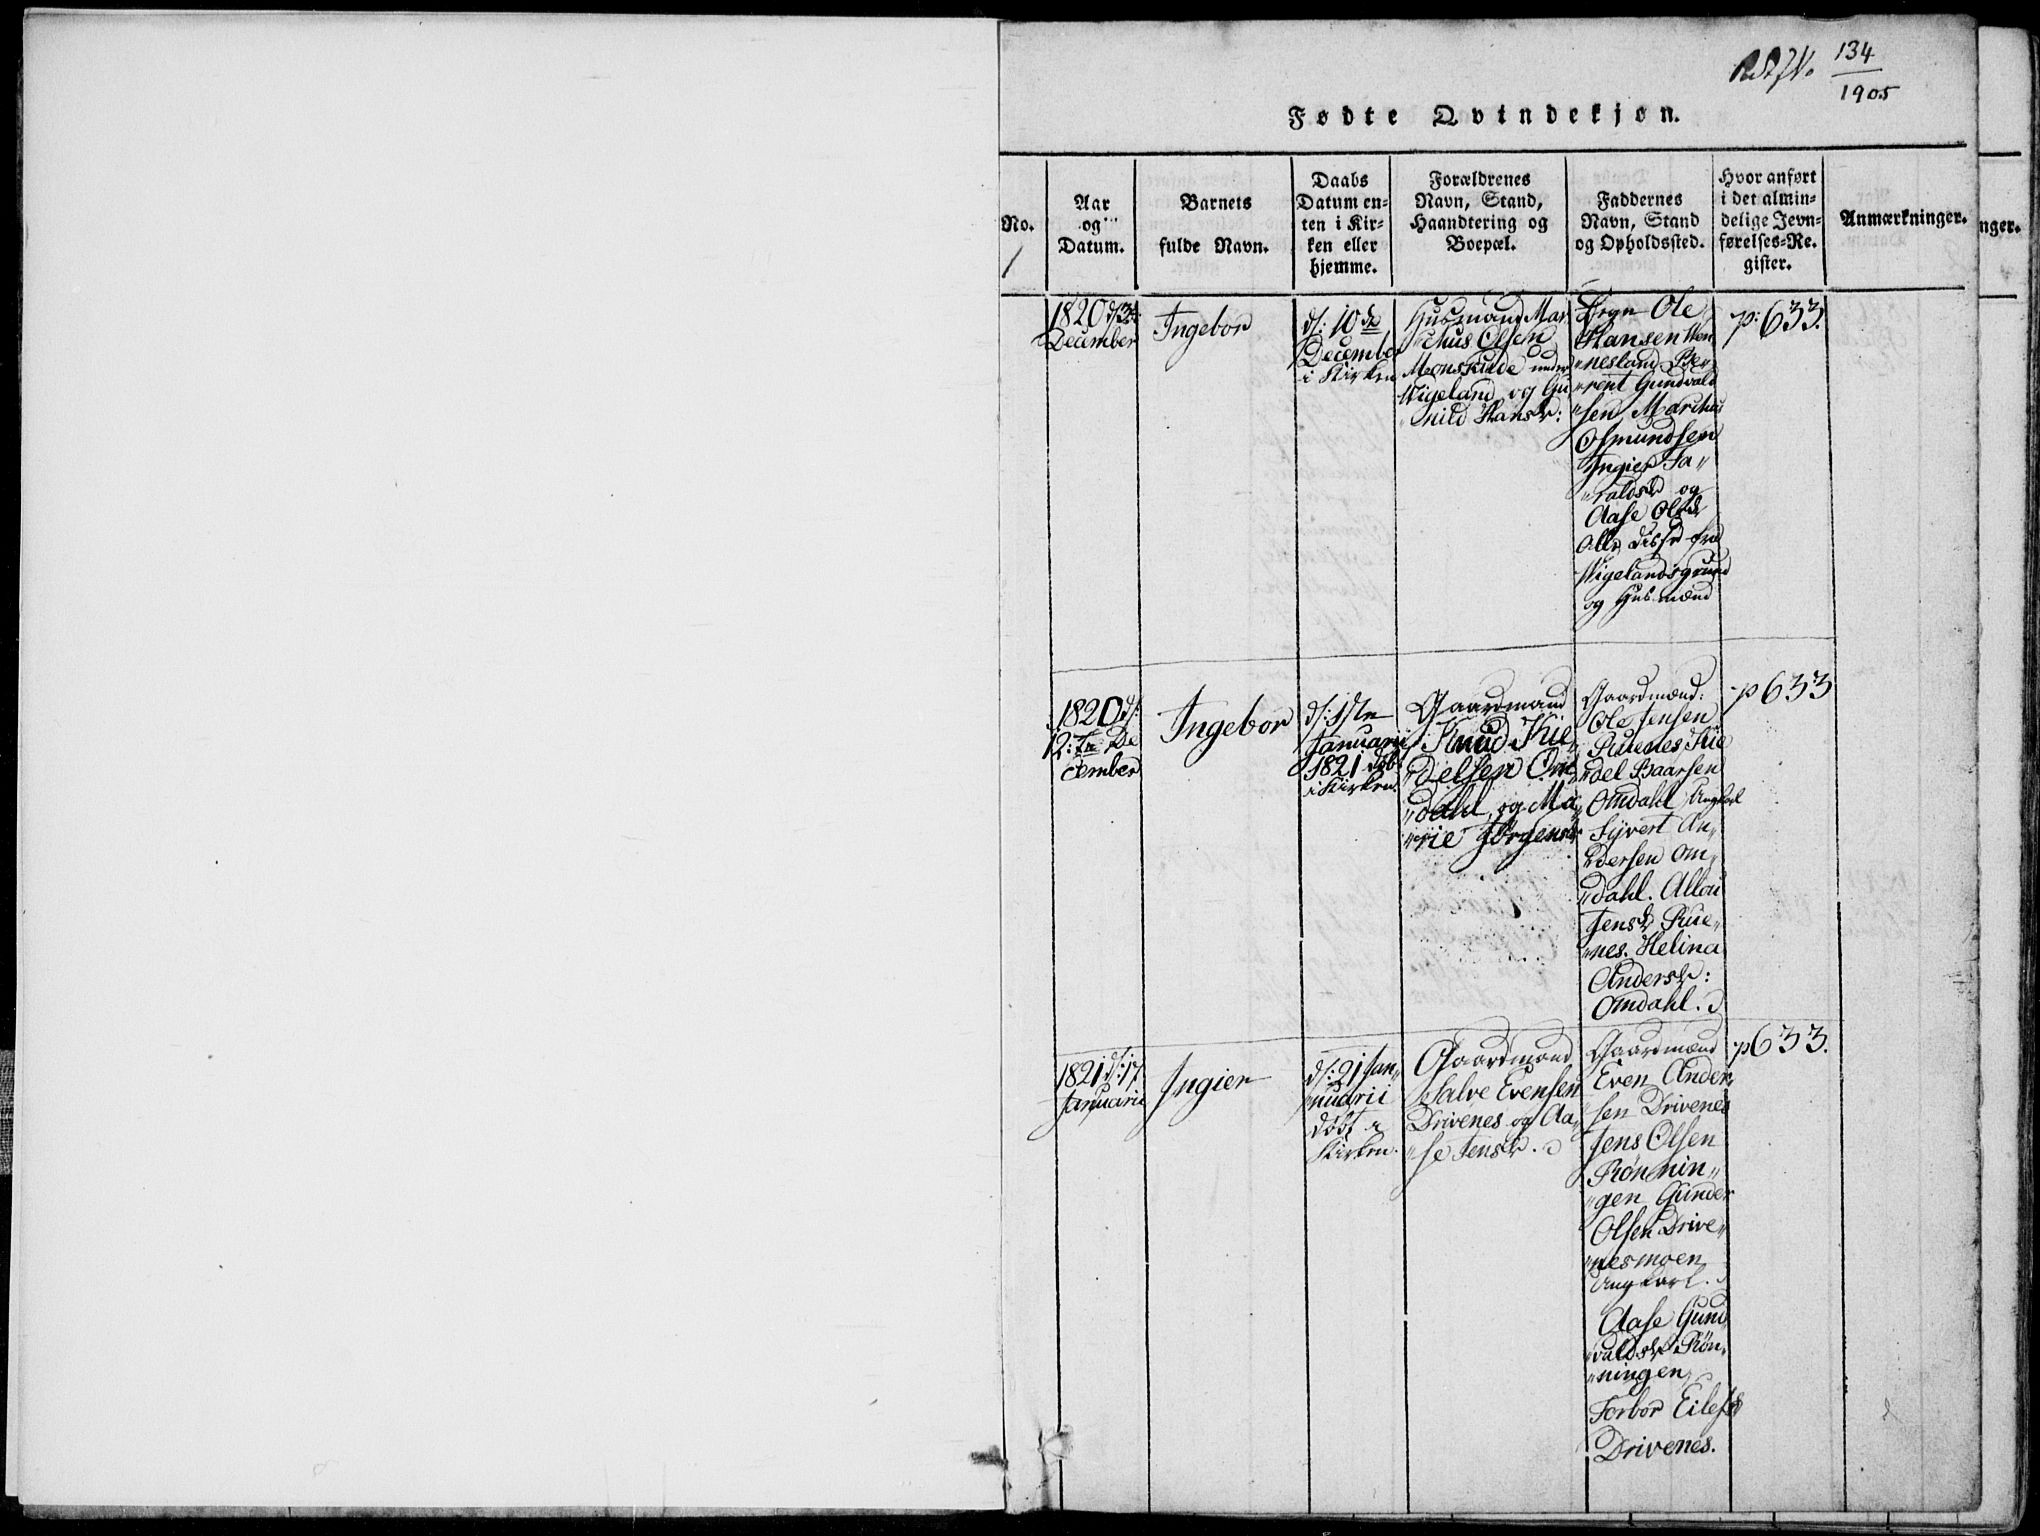 134
1905
Fødte Qvindekjøn.
No.
Aar
og
Datum.
Barnets
fulde Navn.
Daabs
Datum en-
ten i Kir-
ken eller
hjemme.
Forældrenes
Navn, Stand,
Haandtering og
Boepæl.
Faddernes
Navn, Stand
og Opholdssted.
Hvor anført
i det almin-
delige Jevn-
førelses-Re-
gister.
Anmærkninger.
nger.
1
1820 d: 3
December
Ingebor
d: 10de
December
i Kirken
Huusmand Mar
chus Olsen
Monskulde under
Wigeland og Gu
nild Hansdr:
Ole
Hansen Wen
nesland
rent Gundvald
sen Marchus
Osmundsen
Ingier Ta„
„raldsdr og
Aase Olsdr
Alle disse fra
Wigelandsgrund
og Husmænd
p: 633.
1820 d:
12:te De
cember
Ingebor
d: 1ste
Januarii
1821 døbt
i Kirken.
Gaardmand
Knud Kie„
„delsen Om
„dahl og Ma„
„rie Jørgensdr
Gaardmænd:
Ole Jensen
Ruenes Kie
„del Baarsen
Omdahl Ungkarl
Syvert An„
„dersen Om„
„dahl. Allou
Jensdr Rue„
„nes. Helina
Andersdr:
Omdahl.
p 633
1821 d: 17
Januarii
Ingier
d: 21 Jan„
nuarii
døbt i
Kirken.
Gaardmand
Salve Evensen
Drivenes og Aa„
„se Jensdr.
Gaardmænd
Even Ander„
sen Drivenes
Jens Olsen
Rønnin„
„gen Gunder
Olsen Drive„
„nesmoen
Ungkarl.
Aase Gund
„valdsdr Røn„
„ningen,
Torbor Eilefsdr
Drivenes.
p 633.